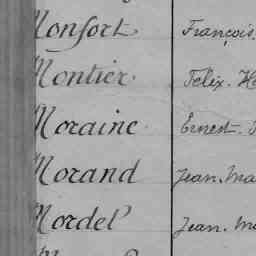 Monfort François.
Montier. Félix. H
Moraine. Ernest.
Morand Jean. Ma
Mordel Jean. Ma